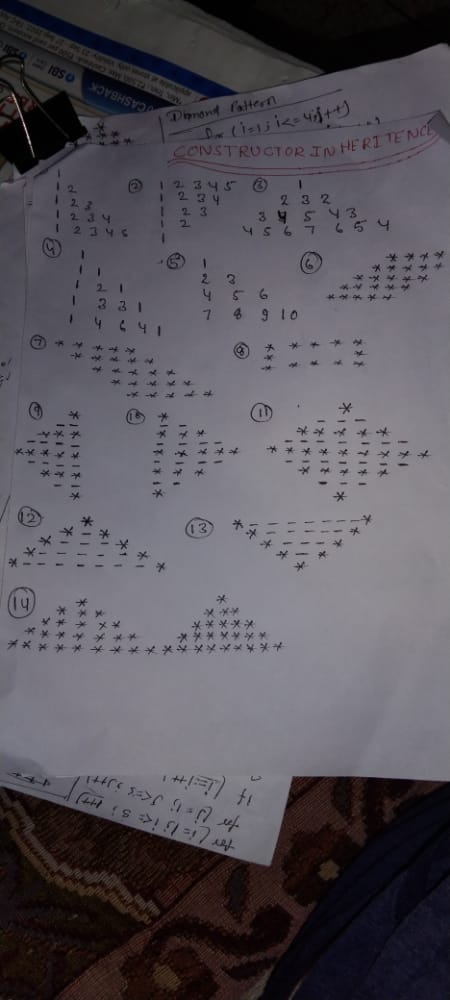 SBI
CASHBACK
Diamond Pattern
for (i=1; i<=4; i++)
CONSTRUCTOR INHERITENCE
1
1 2
1 2 3
1 2 3 4
1 2 3 4 5
② 1 2 3 4 5
1 2 3 4
1 2 3
1 2
1
③ 1
2 3 2
3 4 5 4 3
4 5 6 7 6 5 4
④ 1
1 1
1 2 1
1 3 3 1
1 4 6 4 1
⑤ 1
2 3
4 5 6
7 8 9 10
⑥ * * * *
* * * * *
* * * * *
* * * * *
⑦ * * * * *
* * * * *
* * * * *
* * * * *
* * * * *
⑧ * * * * *
* *
* * * * *
⑨ *
- -
* * *
- - - -
* * * * *
- - - -
* * *
- -
*
⑩ *
- -
* * *
- - - -
* * * * *
- - - -
* * *
- -
*
⑪ *
- - -
* * * * *
- - - - - - -
* * * * * * * * *
- - - - - - -
* * * * *
- - -
*
⑫ *
* - *
* - - - *
* - - - - - *
* - - - - - - - *
⑬ * - - - - - - - *
* - - - - - *
* - - - *
* - *
*
⑭ * *
* * * * * *
* * * * * * * * *
* * * * * * * * * * * *
* * * * * * * * * * * * * * * * *
for (i=1; i<=5; i++)
for (j=1; j<=5; j++)
if